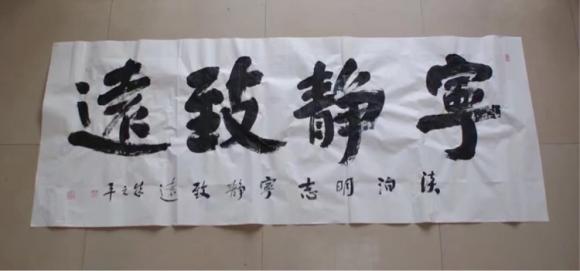 寧靜致遠
淡泊明志寧靜致遠